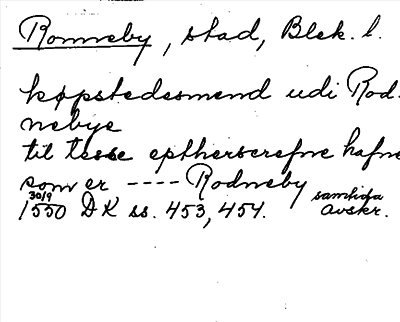 Ronneby, stad, Blek. l.
købstedesmend udi Rod-
nebye
til tesse eptherscrefne hafne
som er ---- Rodneby
30/9 samtida
1550 DK ss. 453, 454. avskr.